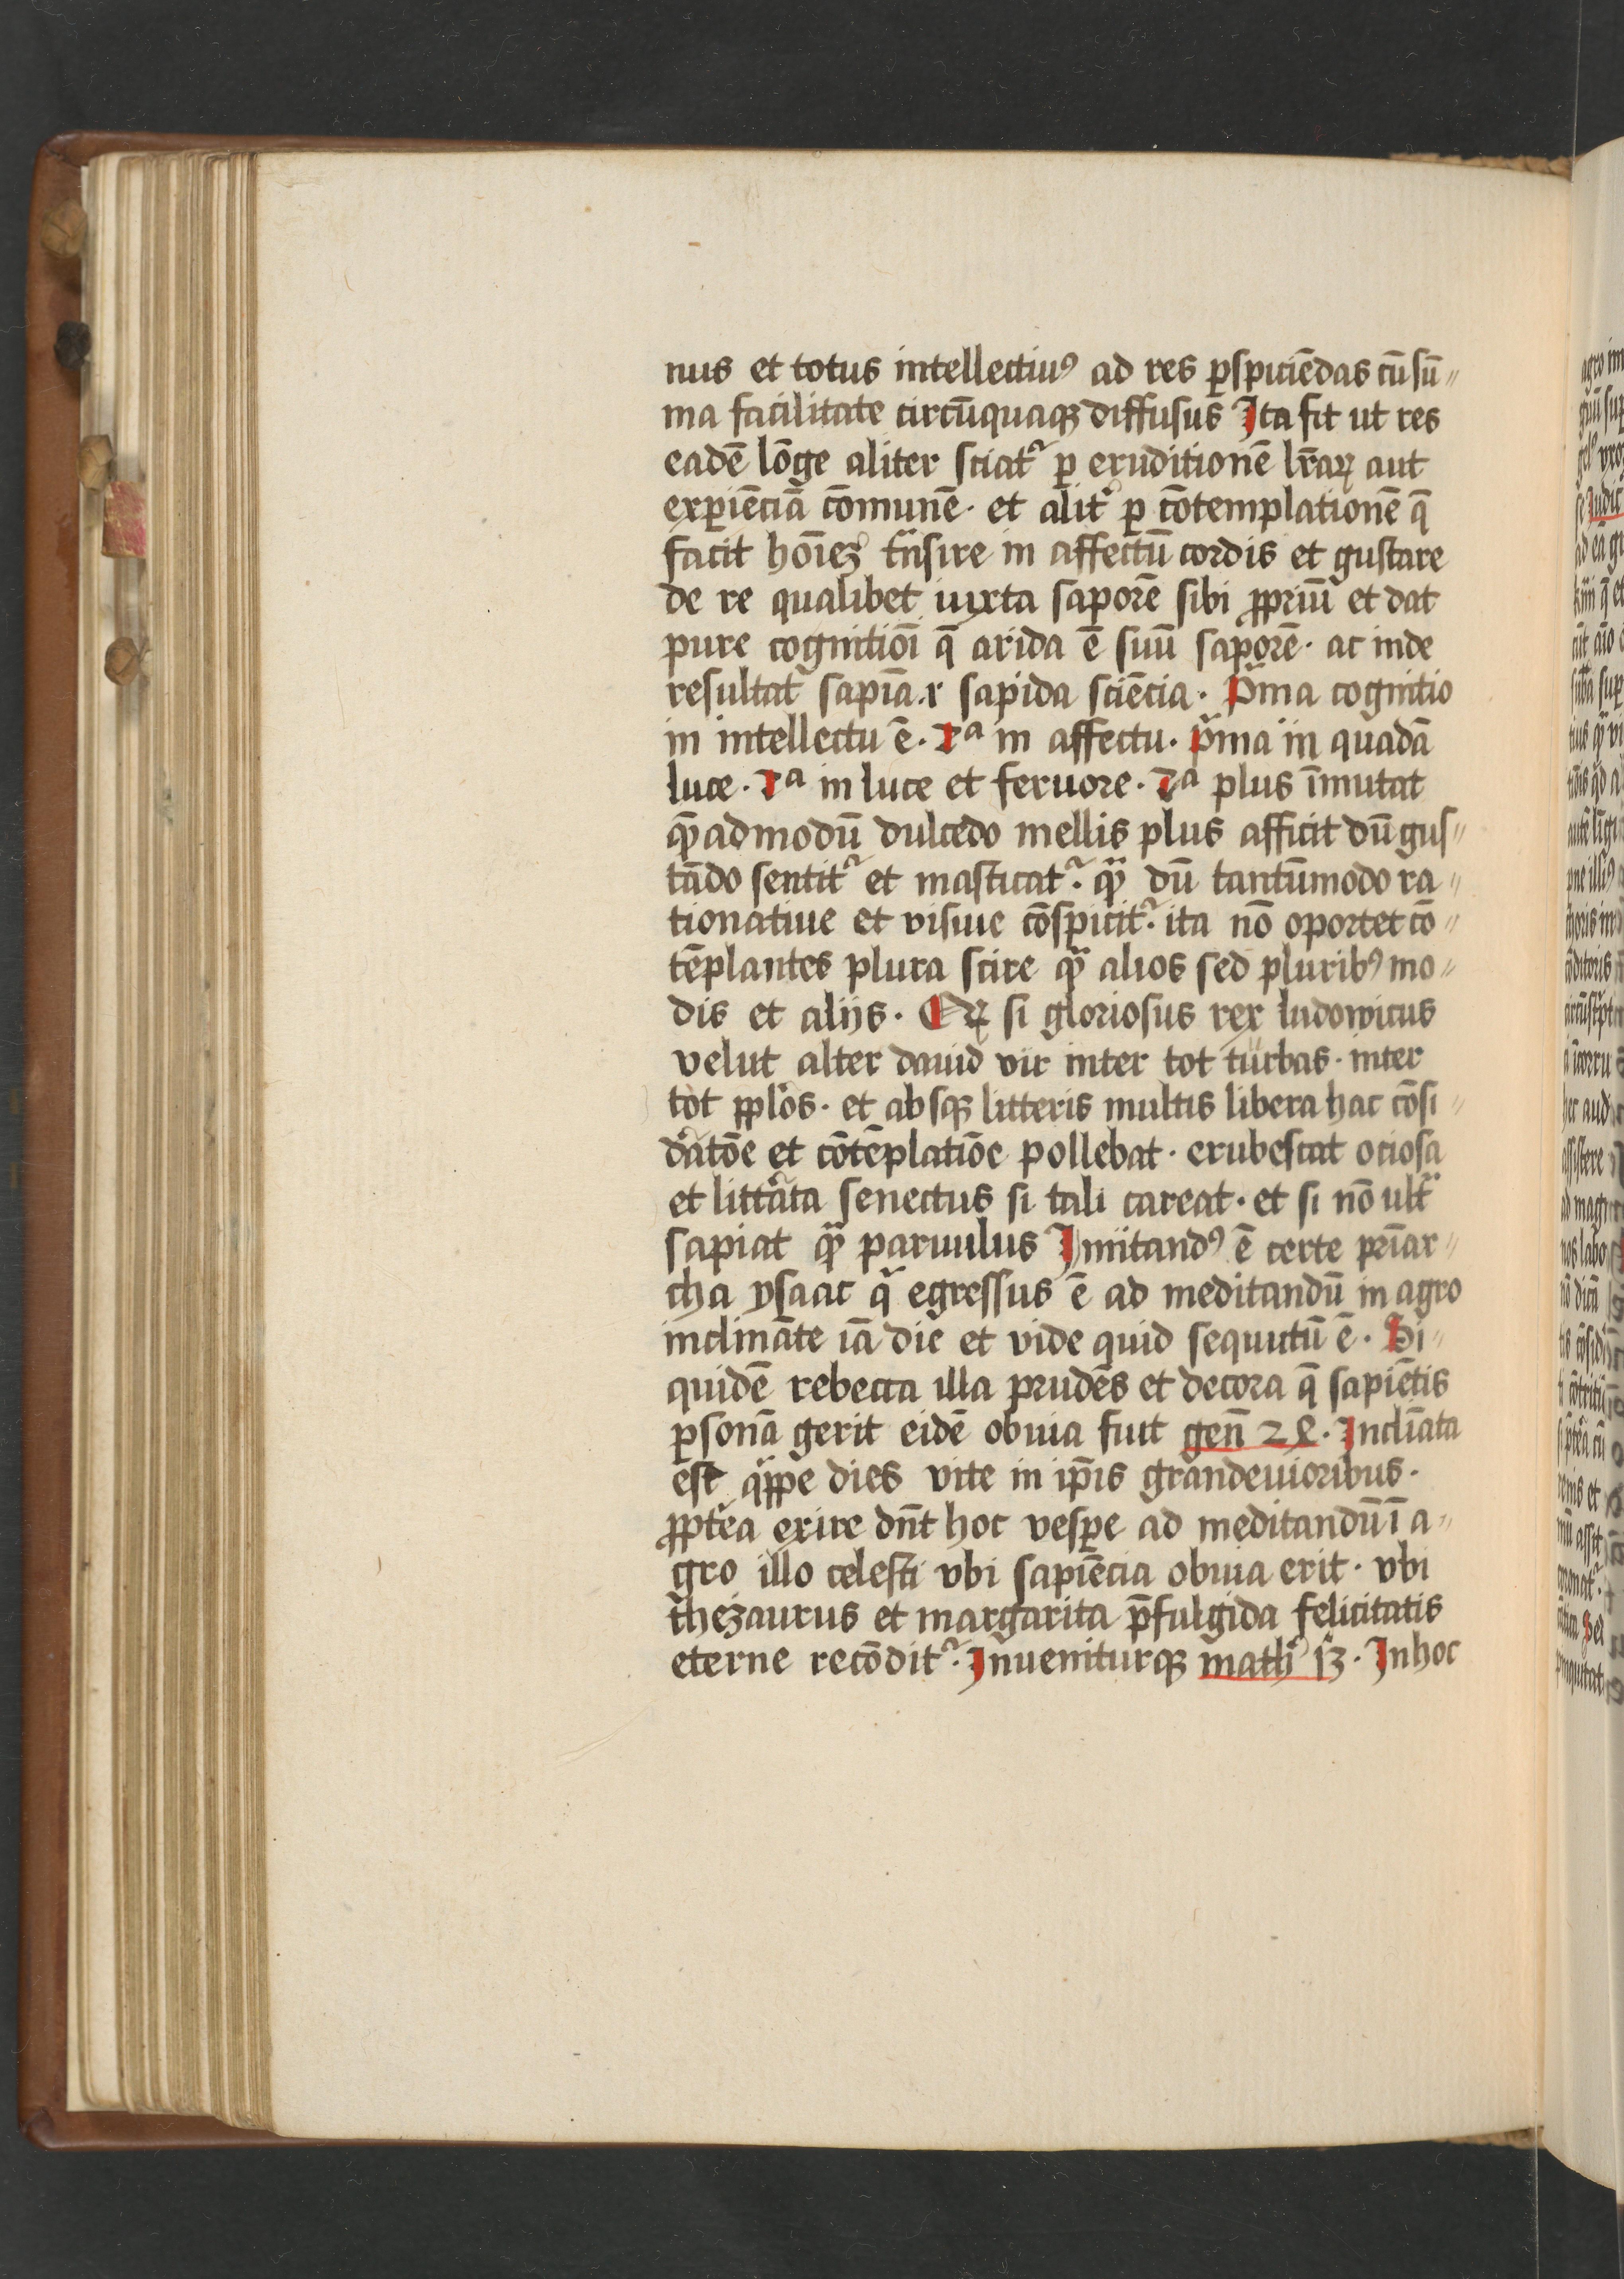 nus et totus intellectiuꝰ ad res ꝑspiciēdas cū sū„
ma facilitate circūquaqꝫ diffusus Ita fit ut res
eadē lōge aliter sciatᷣ ꝑ eruditionē lr̄aꝝ aut
exꝑiēciā cōmunē· et alit͛ ꝑ cōtemplationē q̄
facit hoīeꝫ tn̄sire in affectū cordis et gustare
de re qualibet iuxta saporē sibi ꝓpriū et dat
pure cognitiōi q̄ arida ē suū saporē· ac inde
resultat sapīa .ı sapida sciēcia· Pͥma cognitio
in intellectu ē· ꝛᵃ in affectu· pͥma in quadā
luce· ꝛᵃ in luce et feruore· ꝛᵃ plus īmutat
quēadmodū dulcedo mellis plus afficit dū gus„
tādo sentitᷣ et masticatᷣ· qᷓ dū tantūmodo ra„
tionatiue et visiue cōspicitᷣ· ita nō oportet cō„
tēplantes plura scire qᷓ alios sed pluribꝰ mo„
dis et aliis· Qꝝ si gloriosus rex ludowicus
velut alter dauid vir inter tot turbas· inter
tot ꝓplōs· et absqꝫ litteris multis libera hac cōsi„
d͛atōe et cōtēplatiōe pollebat· erubescat ociosa
et litt͛ata senectus si tali careat· et si nō ult͛
sapiat qᷓ paruulus Imitandꝰ ē certe pr̄iar„
cha ysaac qͥ egressus ē ad meditandū in agro
inclināte iā die et vide quid sequutū ē· Si„
quidē rebecca illa prudēs et decora q̄ sapiētis
ꝑsonā gerit eidē obuia fuit gen̄ 2ꝭ· Inclīata
est qͥppe dies vite in ip̄is grandeuioribus·
ꝓpt͛ea exire dn̄t hoc vesꝑe ad meditandū ī a„
gro illo celesti vbi sapiēcia obuia erit· vbi
thezaurus et margarita p̄fulgida felicitatis
eterne recōditᷣ· Inueniturqꝫ math͛ 13· In hoc